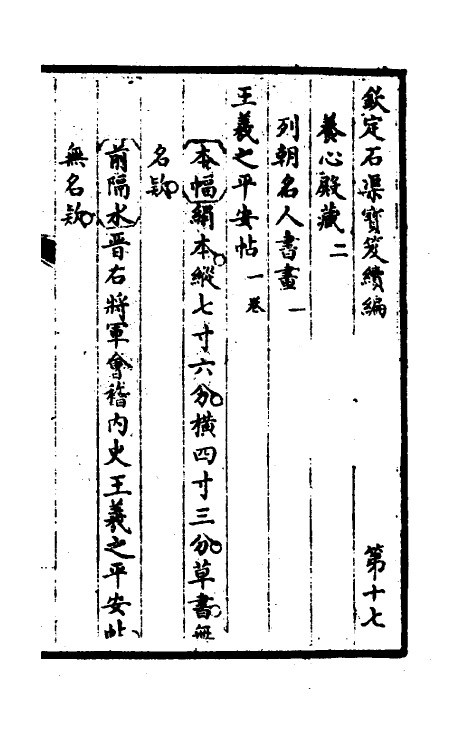 欽定石渠寶笈續編 第十七
養心殿藏二
列朝名人書畫一
王羲之平安帖一卷
本幅絹本縱七寸六分橫四寸三分草書無
名款
前隔水晉右將軍會稽內史王羲之平安帖
無名款